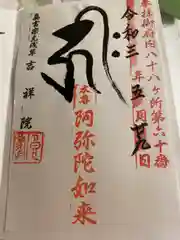 奉拝御府内八十八ヶ所第六十番
令和三年五月廿九日
本尊
阿弥陀如来
吉祥院